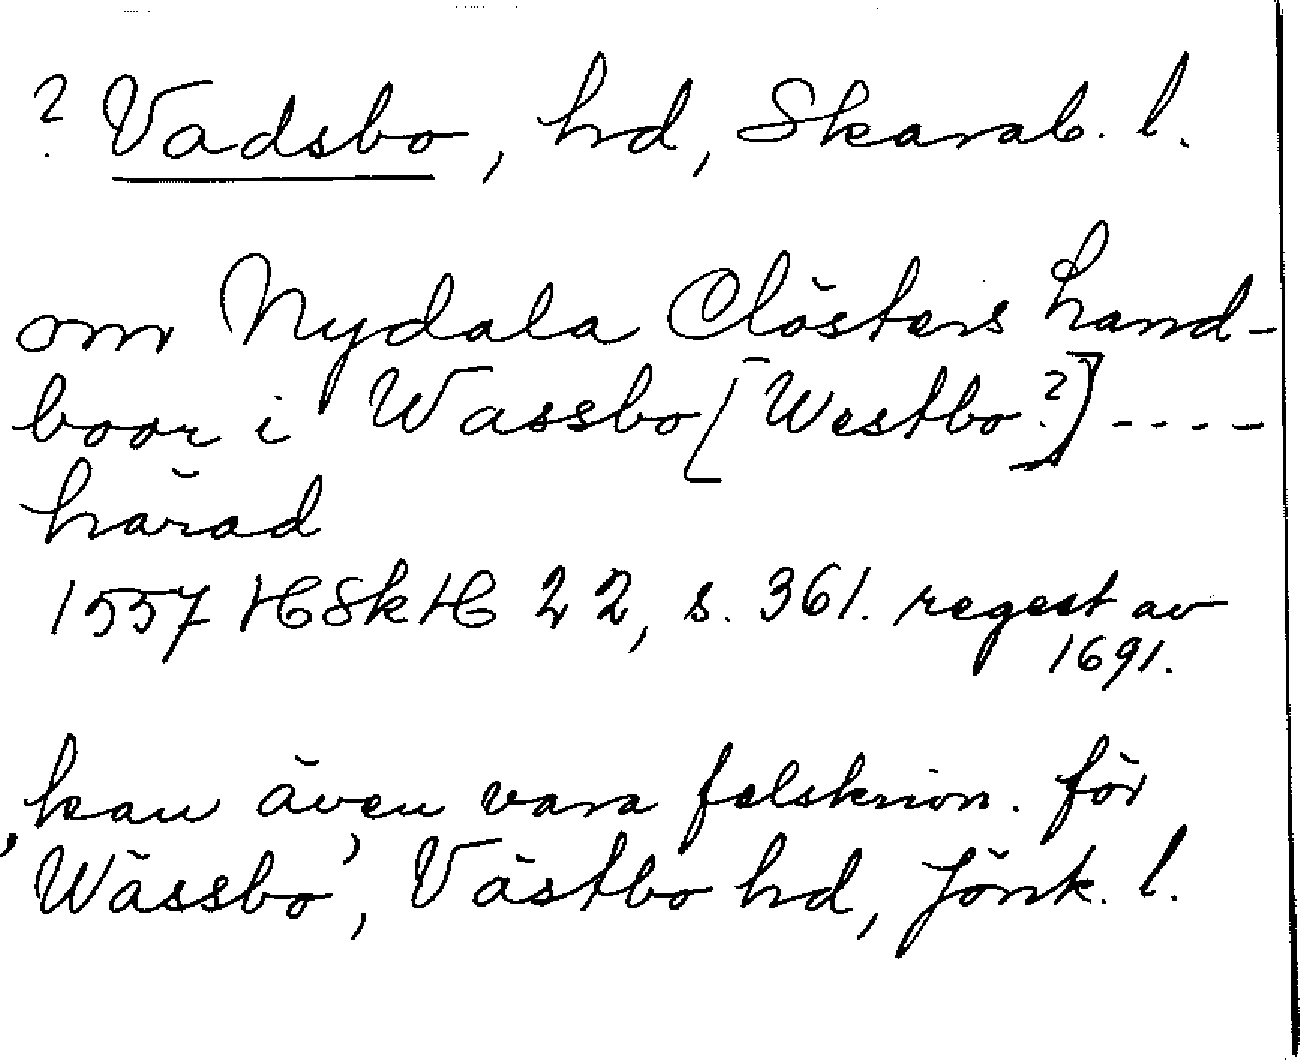 ? Vadsbo, hd, Skarab. l.
om Nydala Clösters hand-
boor i Wassbo [Westbo?] ----
härad
1557 HSkH 22, s. 361. regest av
1691.
kan även vara felskrivn. för
'Wässbo', Västbo hd, Jönk. l.